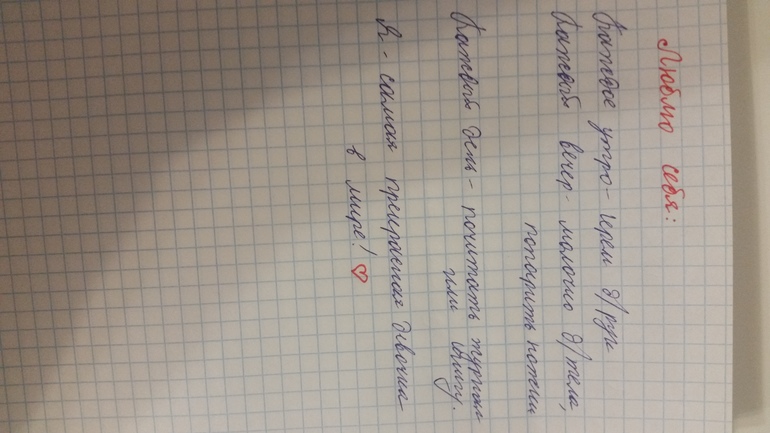 Люблю себя:
Каждое утро - крем д/рук
Каждый вечер - молочко д/тела,
попарить ножки
Каждый день - почитать журнал
или книгу.
Я - самая прекрасная девочка
в мире! ♡